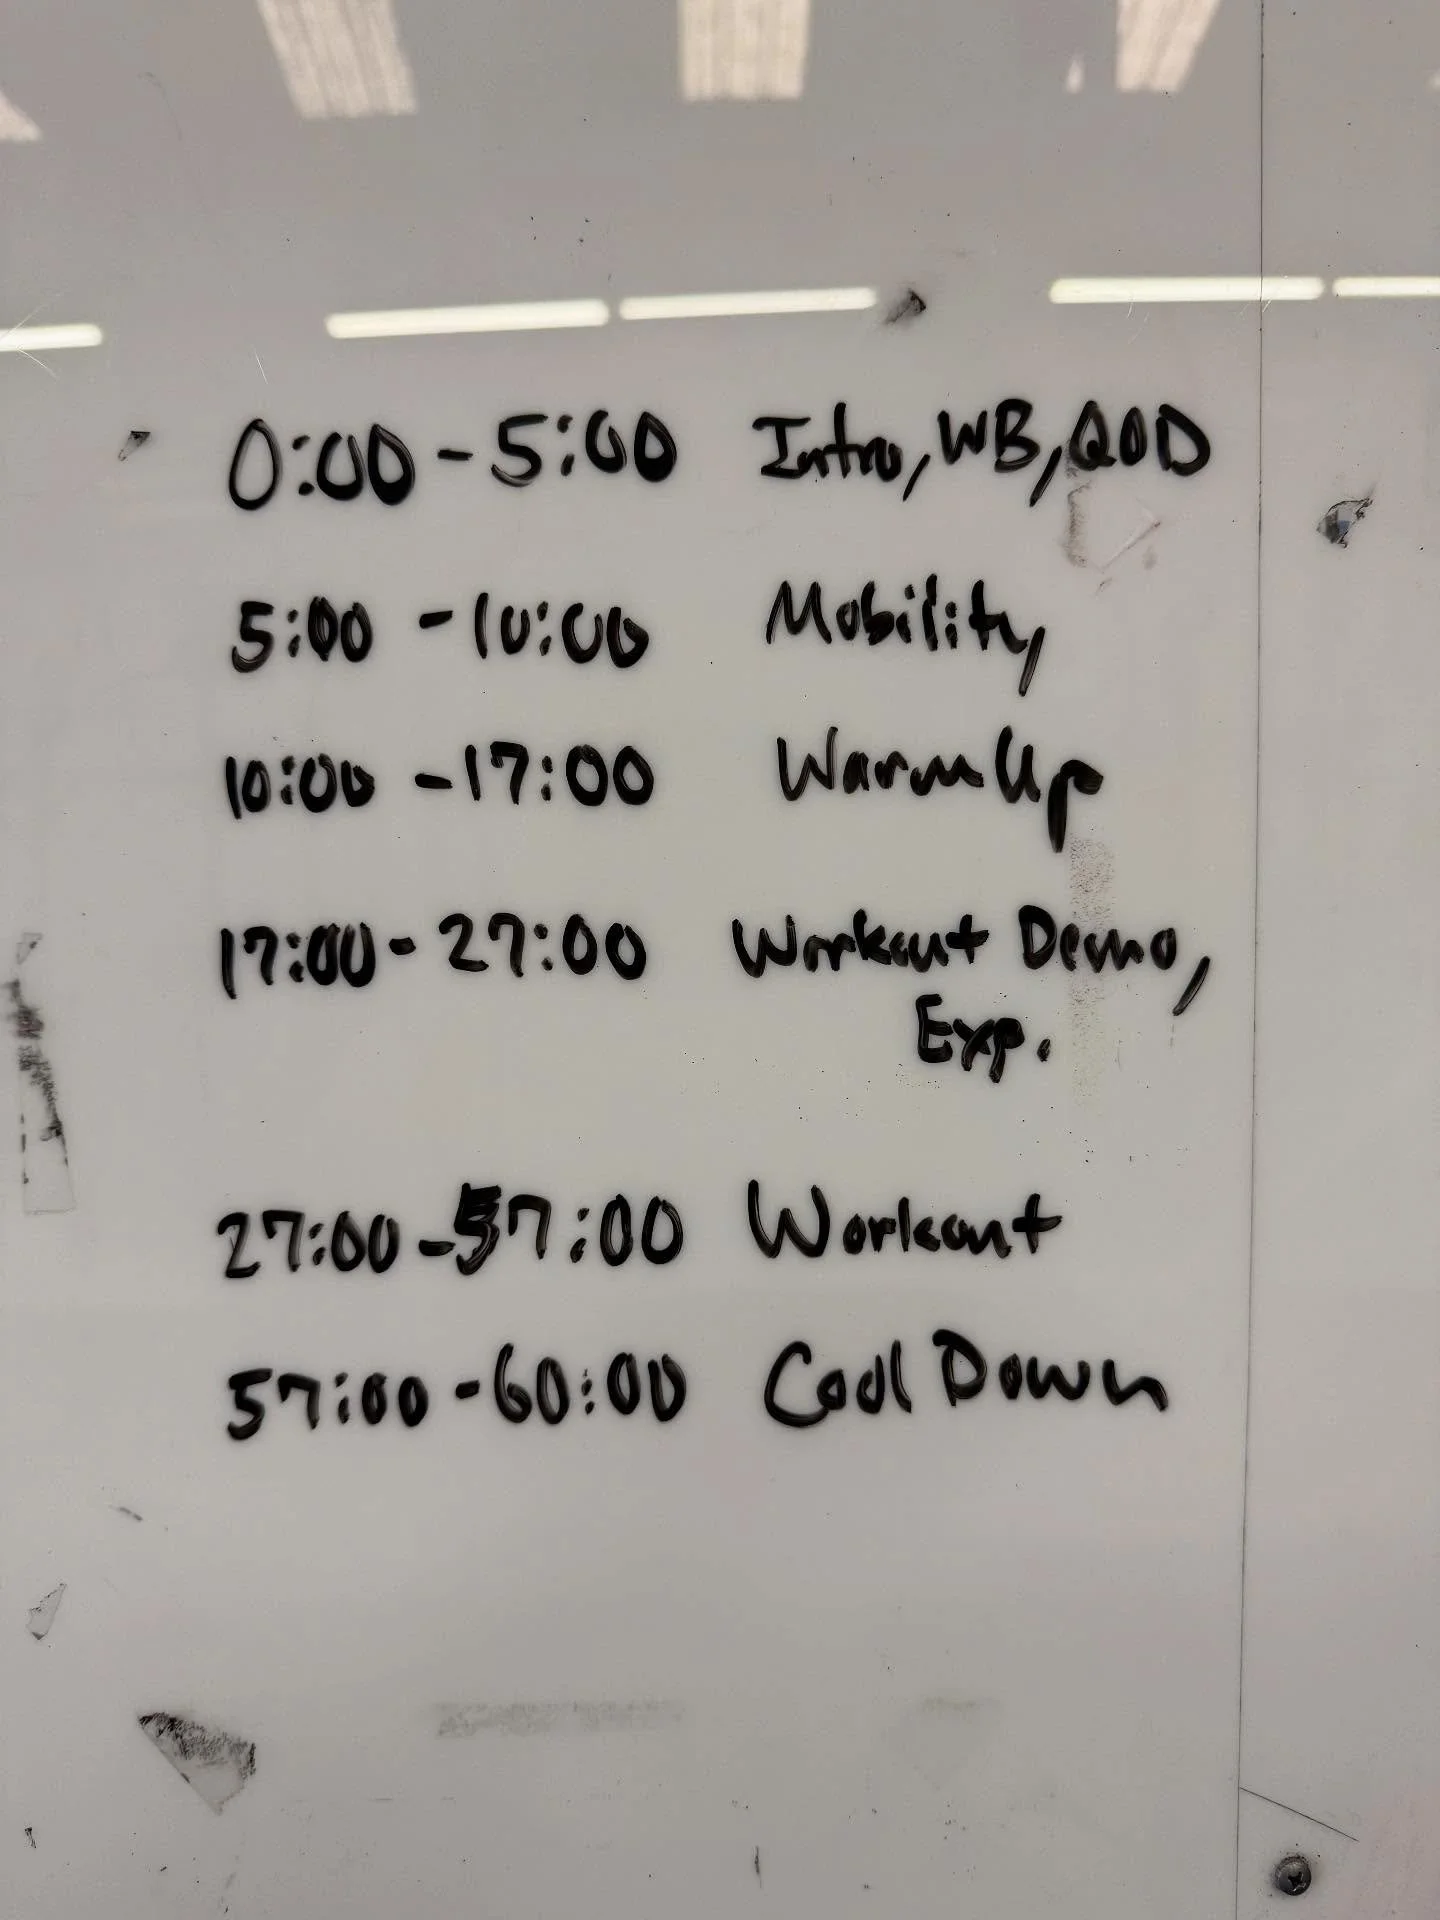 0:00 - 5:00 Intro, WB, QOD
5:00 - 10:00 Mobility
10:00 - 17:00 Warm Up
17:00 - 27:00 Workout Demo,
Exp.
27:00 - 57:00 Workout
57:00 - 60:00 Cool Down